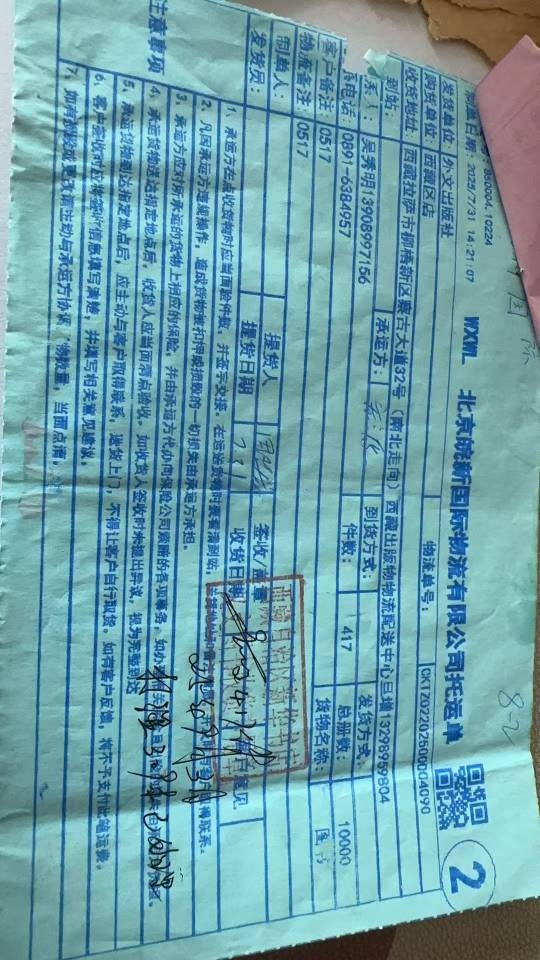 WXWL 北京皖新国际物流有限公司托运单
②
8-2
B50004-10224
制单日期：2025/7/31 14:21:07
物流单号：CKTZ02202500004090
发货单位：外文出版社
购货单位：西藏区店
收货地址：西藏拉萨市柳梧新区慕古大道32号（南北走向）西藏出版物物流配送中心旦增13298959804
到站：
承运方：
到货方式：
发货方式：
联系人：吴秀明13908997156
件数：417
总册数：10000
电话：0891-6384957
货物名称：图书
客户备注：0517
物流备注：0517
制单人：
提货人
签收/盖章
客户意见
发货员：
提货日期 7.31
收货日期
注意事项
1、承运方在点收货物时应当面验件数，并签字交接。在运送货物时表看清到站、
2、凡因承运方违规操作，造成货物单扣押或损毁的一切损失由承运方承担。
3、承运方应对所承运的货物上相应的保险，并由承运方代办向保险公司索赔的各项事务。
4、承运货物送达指定地点后，收货人应当面清点验收。如收货人签收时未提出异议，视为完整到达
5、承运货物到达指定地点后，应主动与客户取得联系，送货上门，不得让客户自行取货。如有客户反馈，将不予支付此笔运费。
6、客户签收时应将签收信息填写清楚，并填写相关意见建议。
7、如有拆毁或更改需主动与承运方协调，物数量，当面点清。